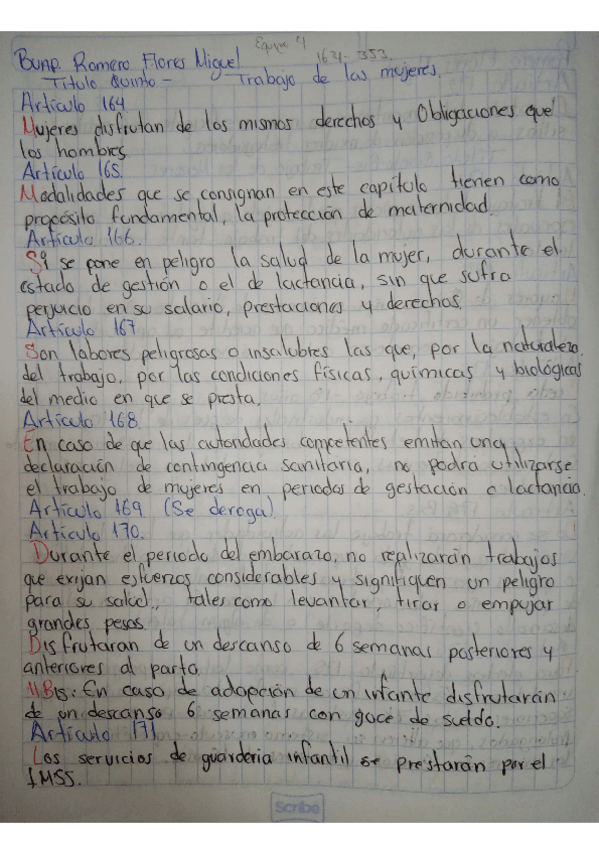 Equipo 4
Romero Flores Miguel 164-353
Titulo Quinto - Trabajo de las mujeres.
Artículo 164
Mujeres disfrutan de los mismos derechos y Obligaciones que
los hombres
Artículo 165.
Modalidades que se consignan en este capítulo tienen como
propósito fundamental, la protección de maternidad.
Artículo 166.
Si se pone en peligro la salud de la mujer, durante el
estado de gestión o el de lactancia, sin que sufra
perjuicio en su salario, prestaciones y derechos.
Artículo 167
Son labores peligrosas o insalubres las que, por la naturaleza
del trabajo, por las condiciones físicas, químicas y biológicas
del medio en que se presta.
Artículo 168.
En caso de que las autoridades competentes emitan una
declaración de contingencia sanitaria, no podrá utilizarse
el trabajo de mujeres en periodos de gestación o lactancia.
Artículo 169 (Se deroga).
Artículo 170.
Durante el periodo del embarazo, no realizarán trabajos
que exijan esfuerzos considerables y signifiquen un peligro
para su salud, tales como levantar, tirar o empujar
grandes pesas.
Disfrutaran de un descanso de 6 semanas posteriores y
anteriores al parto.
Bis: En caso de adopción de un infante disfrutarán
de un descanso 6 semanas con goce de sueldo.
Artículo 171
Los servicios de guardería infantil se prestarán por el
IMSS.
Scribe